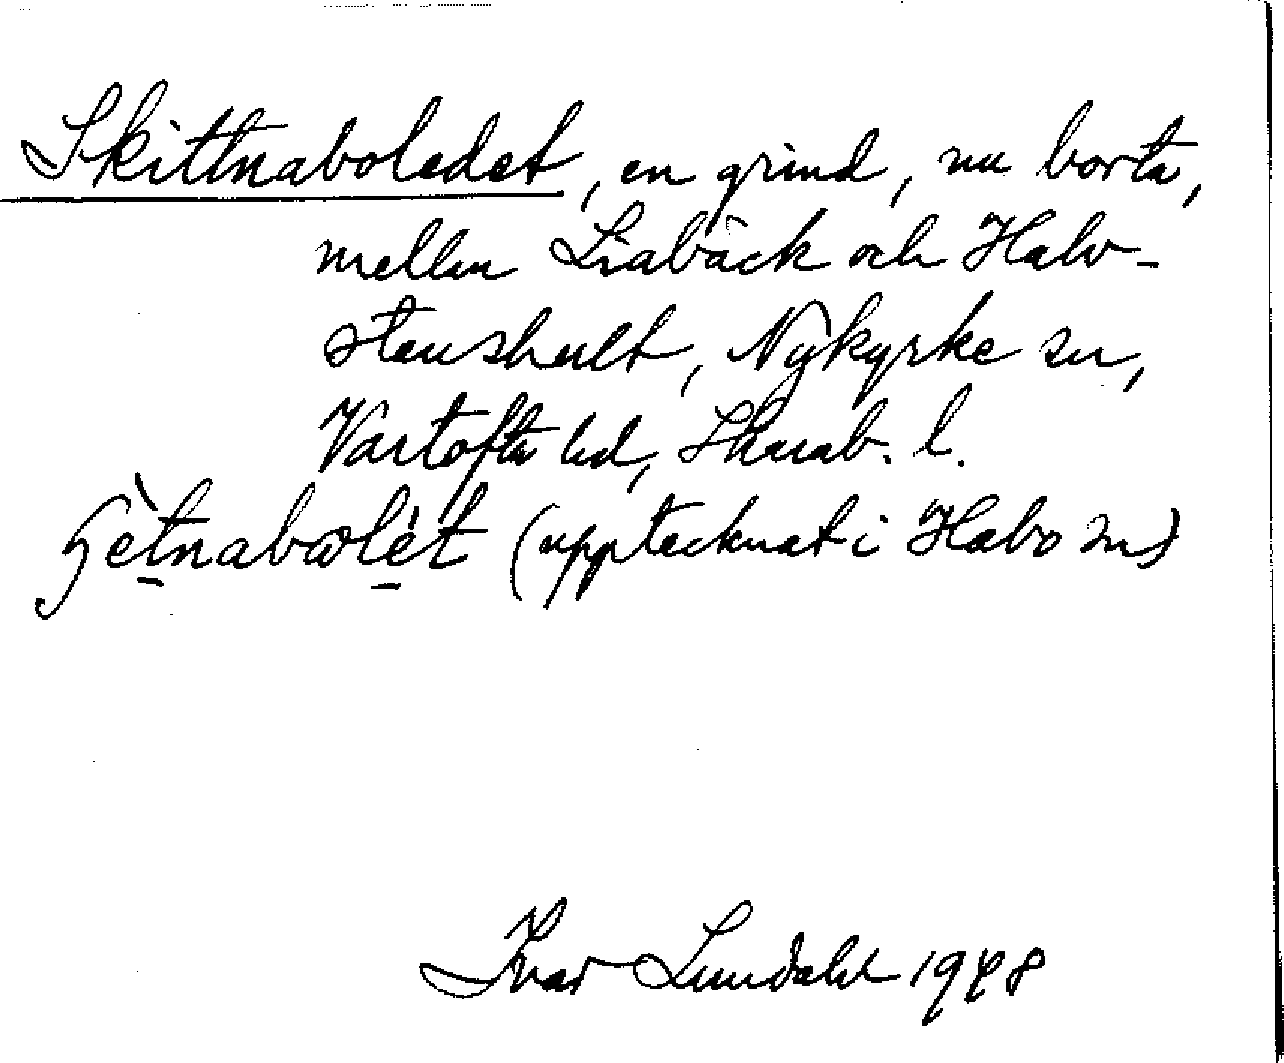 Skittnaboledet, en grind, nu borta,
mellan Liabäck och Halv-
stenshult, Nykyrke sn,
Vartofta hd, Skarab. l.
(upptecknat i Habo sn)
Ivar Lundahl 1948